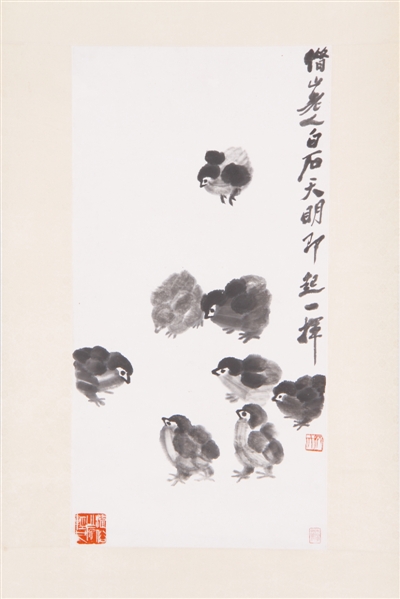 借山老人白石天明即起一挥